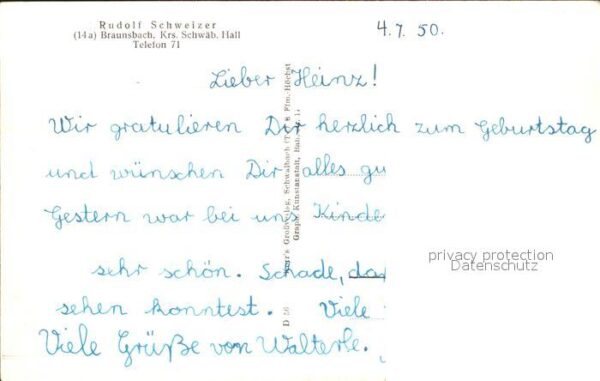 Rudolf Schweizer
(14a) Braunsbach, Krs. Schwäb. Hall
Telefon 71
4. 7. 50.
Lieber Heinz!
Wir gratulieren Dir herzlich zum Geburtstag
und wünschen Dir alles gu
Gestern war bei uns Kinde
sehr schön. Schade, da
sehen konntest. Viele
Viele Grüße von Walterle.
Großverlag, Schwalbach (Ts.) & Ffm.-Höchst
Graph. Kunstanstalt,
D 56
privacy protection
Datenschutz